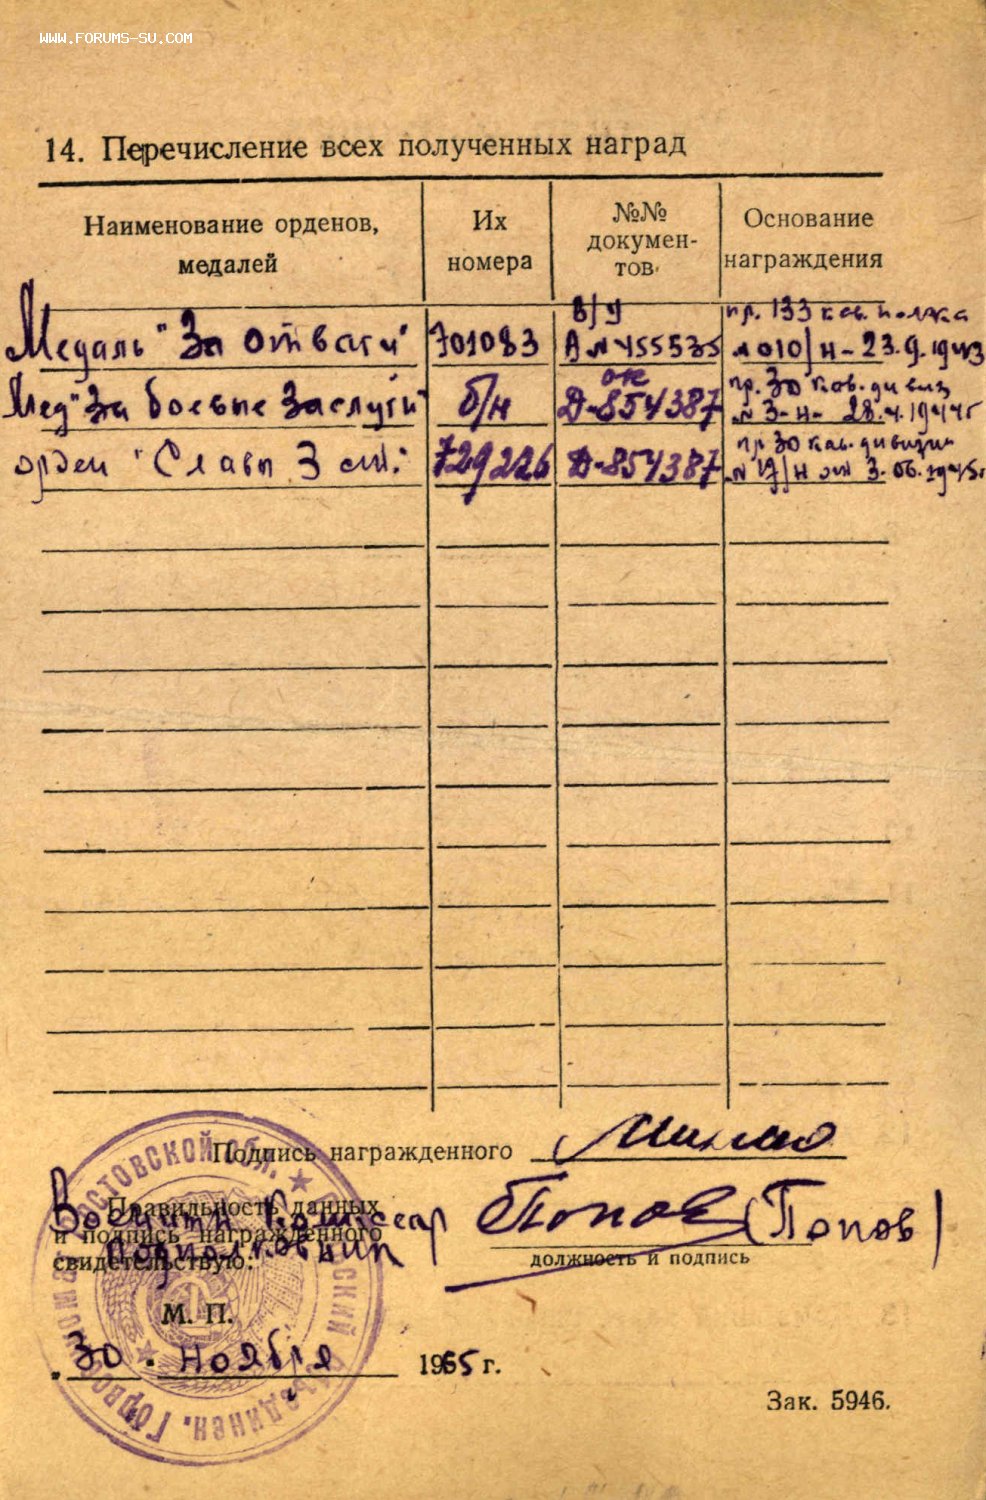 WWW.FORUMS-SU.COM
14. Перечисление всех полученных наград
Наименование орденов, медалей
Их номера
№№ докумен-
тов
Основание награждения
Медаль "За отвагу" 701083 В/У А № 455535 пр. 133 кав. полка № 010/н - 23.9.1943
Мед "За боевые заслуги" б/н ок Д-854387 пр. 30 кав. дивиз № 3-н- 28.4.1944г
орден "Славы 3 ст." 729226 Д-854387 пр 30 кав. дивизии № 17/н от 3.06.1945г
Подпись награжденного
Правильность данных
и подпись награжденного
свидетельствую:
Военный Комиссар
подполковник
Попов (Попов)
должность и подпись
М. П.
30 ноября 1965 г.
Зак. 5946.